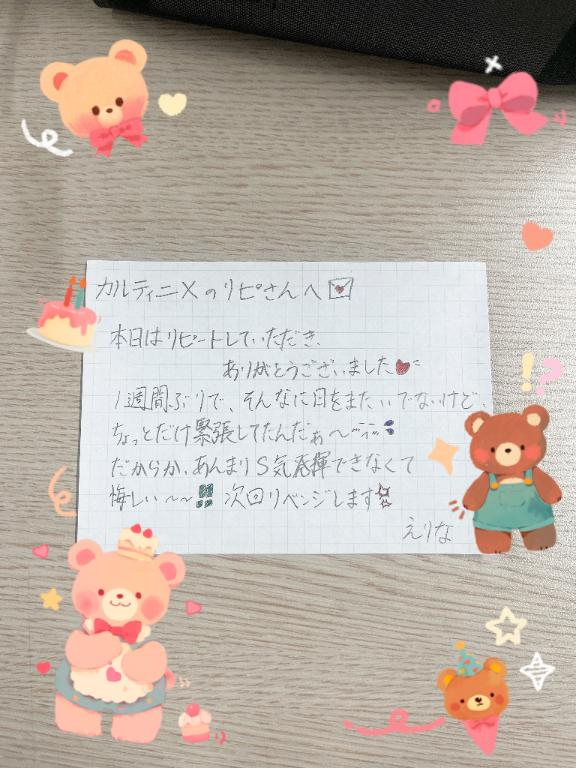 カルティニXのリピさんへ💌
本日はリピートしていただき、
ありがとうございました❤
1週間ぶりで、そんなに日をまたいでないけど、
ちょっとだけ緊張してたんだぁ〜💦
だからか、あんまりS気発揮できなくて
悔しい〜〜‼次回リベンジします
えりな
!?